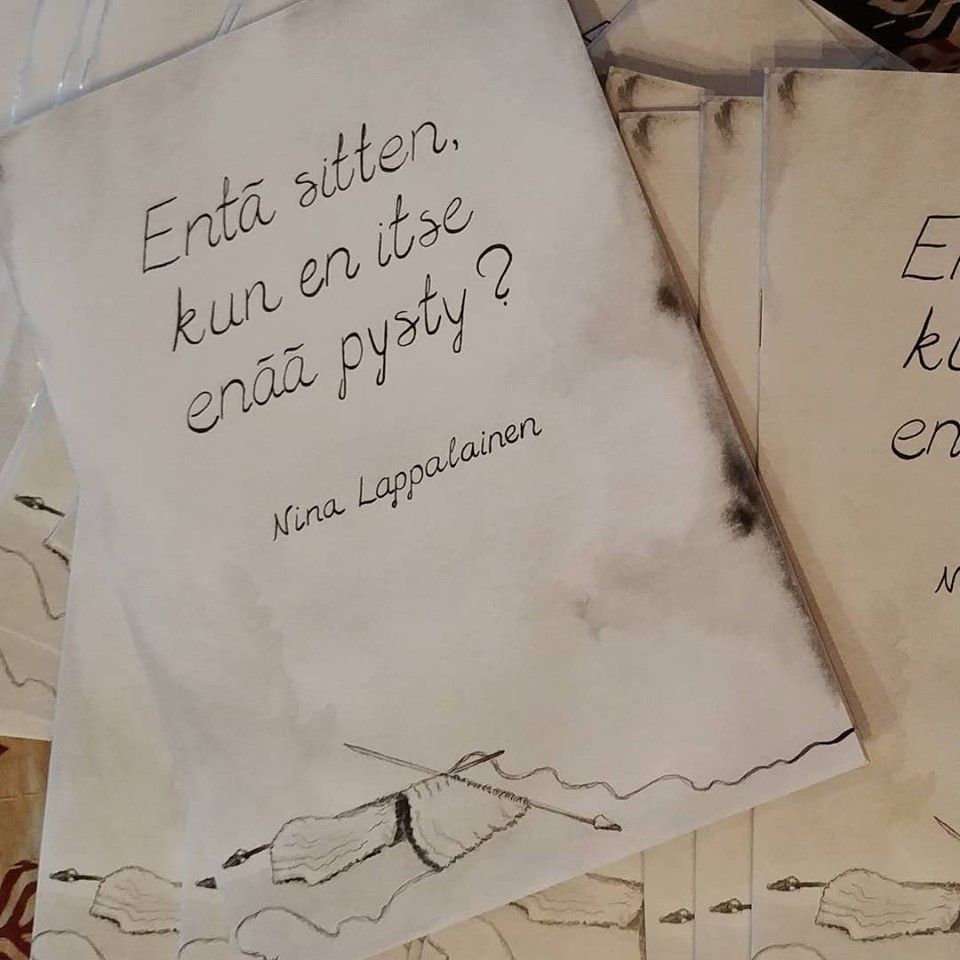 Entä sitten,
kun en itse
enää pysty?
Nina Lappalainen
E
k
en
N